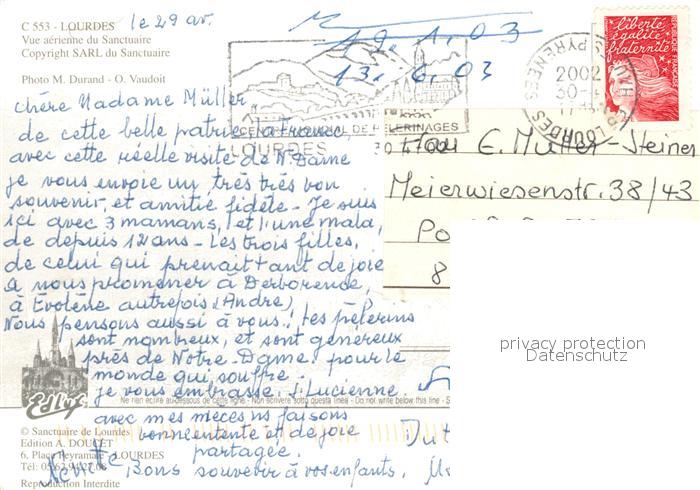 C 553 - LOURDES
le 29 av.
Vue aérienne du Sanctuaire
Copyright SARL du Sanctuaire
Photo M. Durand - O. Vaudoit
19.1.03
13.6.03
liberté
égalité
fraternité
LOURDES
PYRENEES
2002
chère Madame Müller
de cette belle patrie la France,
avec cette réelle visite de N. Dame
je vous envoie un très très bon
souvenir, et amitié fidèle - Je suis
ici avec 3 mamans, et l'une mala,
de depuis 12 ans - Les trois filles,
de celui qui prenait tant de joie
à nous promener à Derborence,
à Evolène autrefois (André)
Nous pensons aussi à vous! Les pèlerins
sont nombreux, et sont généreux
près de Notre-Dame, pour le
monde qui souffre -
je vous embrasse. S. Lucienne
avec mes nièces ns faisons
bonne entente et de joie
partagée.
Bons souvenir à vos enfants.
PELERINAGES
LOURDES
E. Müller-Steiner
Meierwiesenstr. 38/43
Po
8
privacy protection
Datenschutz
Edlys
Ne rien écrire au-dessous de cette ligne - Non scrivere sotto questa linea - Do not write below this line -
© Sanctuaire de Lourdes
Edition A. DOUCET
6, Place Peyramale - LOURDES
Tél: 05.62.94.27.08
Reproduction Interdite